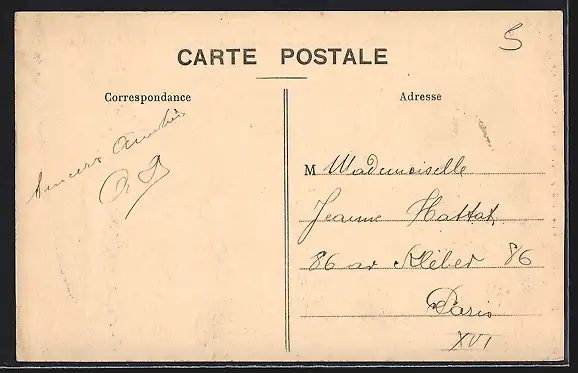 5
CARTE POSTALE
Correspondance
Adresse
Sincères Amitiés
M Mademoiselle
Jeanne Hattat
86 av Kléber 86
Paris
XVI